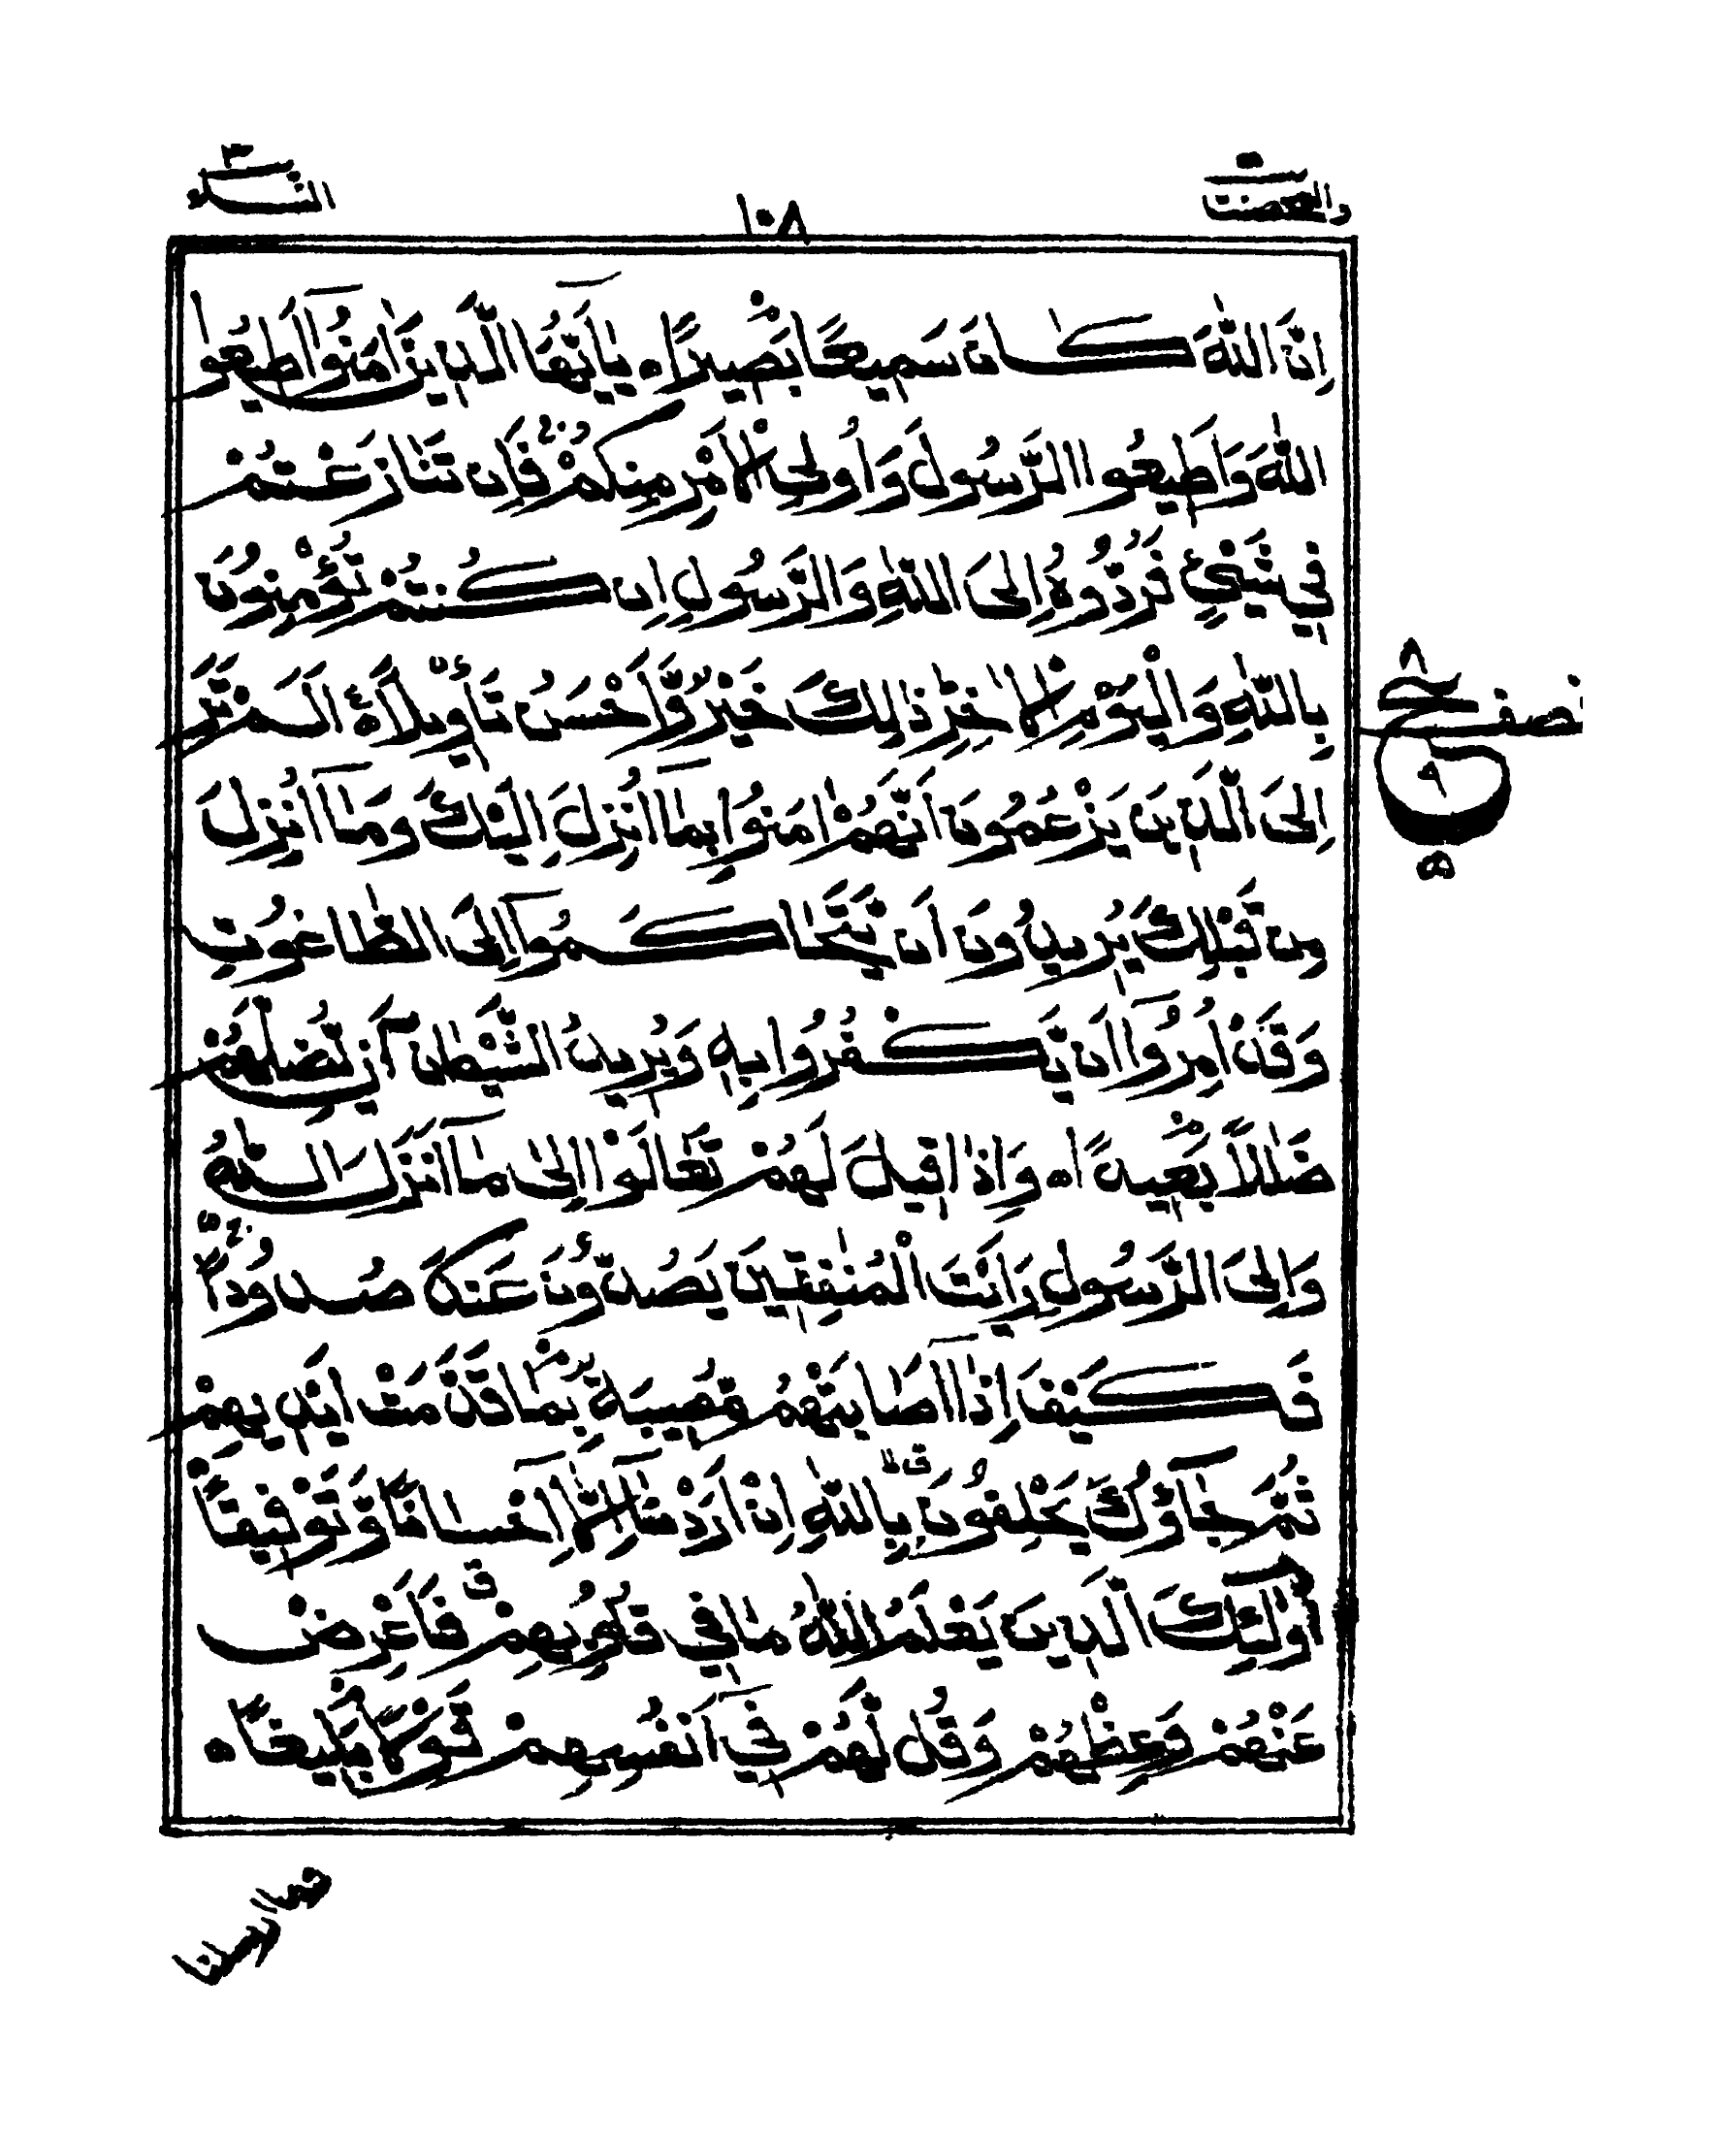 والمحصنت
١٠٨
النساء ٤
اِنَّ اللّٰهَ كَانَ سَمِيْعًۢا بَصِيْرًا ه يٰۤاَيُّهَا الَّذِيْنَ اٰمَنُوْۤا اَطِيْعُوا
اللّٰهَ وَاَطِيْعُوا الرَّسُوْلَ وَاُولِي الْاَمْرِ مِنْكُمْ ۚ فَاِنْ تَنَازَعْتُمْ
فِيْ شَيْءٍ فَرُدُّوْهُ اِلَى اللّٰهِ وَالرَّسُوْلِ اِنْ كُنْتُمْ تُؤْمِنُوْنَ
بِاللّٰهِ وَالْيَوْمِ الْاٰخِرِ ذٰلِكَ خَيْرٌ وَّاَحْسَنُ تَاْوِيْلًا ه اَلَمْ تَرَ
اِلَى الَّذِيْنَ يَزْعُمُوْنَ اَنَّهُمْ اٰمَنُوْا بِمَاۤ اُنْزِلَ اِلَيْكَ وَمَاۤ اُنْزِلَ
مِنْ قَبْلِكَ يُرِيْدُوْنَ اَنْ يَّتَحَاكَمُوْۤا اِلَى الطَّاغُوْتِ
وَقَدْ اُمِرُوْۤا اَنْ يَّكْفُرُوْا بِهٖ وَيُرِيْدُ الشَّيْطٰنُ اَنْ يُّضِلَّهُمْ
ضَلٰلًاۢ بَعِيْدًا ه وَاِذَا قِيْلَ لَهُمْ تَعَالَوْا اِلٰى مَاۤ اَنْزَلَ اللّٰهُ
وَاِلَى الرَّسُوْلِ رَاَيْتَ الْمُنٰفِقِيْنَ يَصُدُّوْنَ عَنْكَ صُدُوْدًا
فَكَيْفَ اِذَاۤ اَصَابَتْهُمْ مُّصِيْبَةٌۢ بِمَا قَدَّمَتْ اَيْدِيْهِمْ
ثُمَّ جَآءُوْكَ يَحْلِفُوْنَ بِاللّٰهِ اِنْ اَرَدْنَاۤ اِلَّاۤ اِحْسَانًا وَّتَوْفِيْقًا
اُولٰٓئِكَ الَّذِيْنَ يَعْلَمُ اللّٰهُ مَا فِيْ قُلُوْبِهِمْ ۗ فَاَعْرِضْ
عَنْهُمْ وَعِظْهُمْ وَقُلْ لَّهُمْ فِيْۤ اَنْفُسِهِمْ قَوْلًاۢ بَلِيْغًا ه
نصف
٨
ع
٩
٥